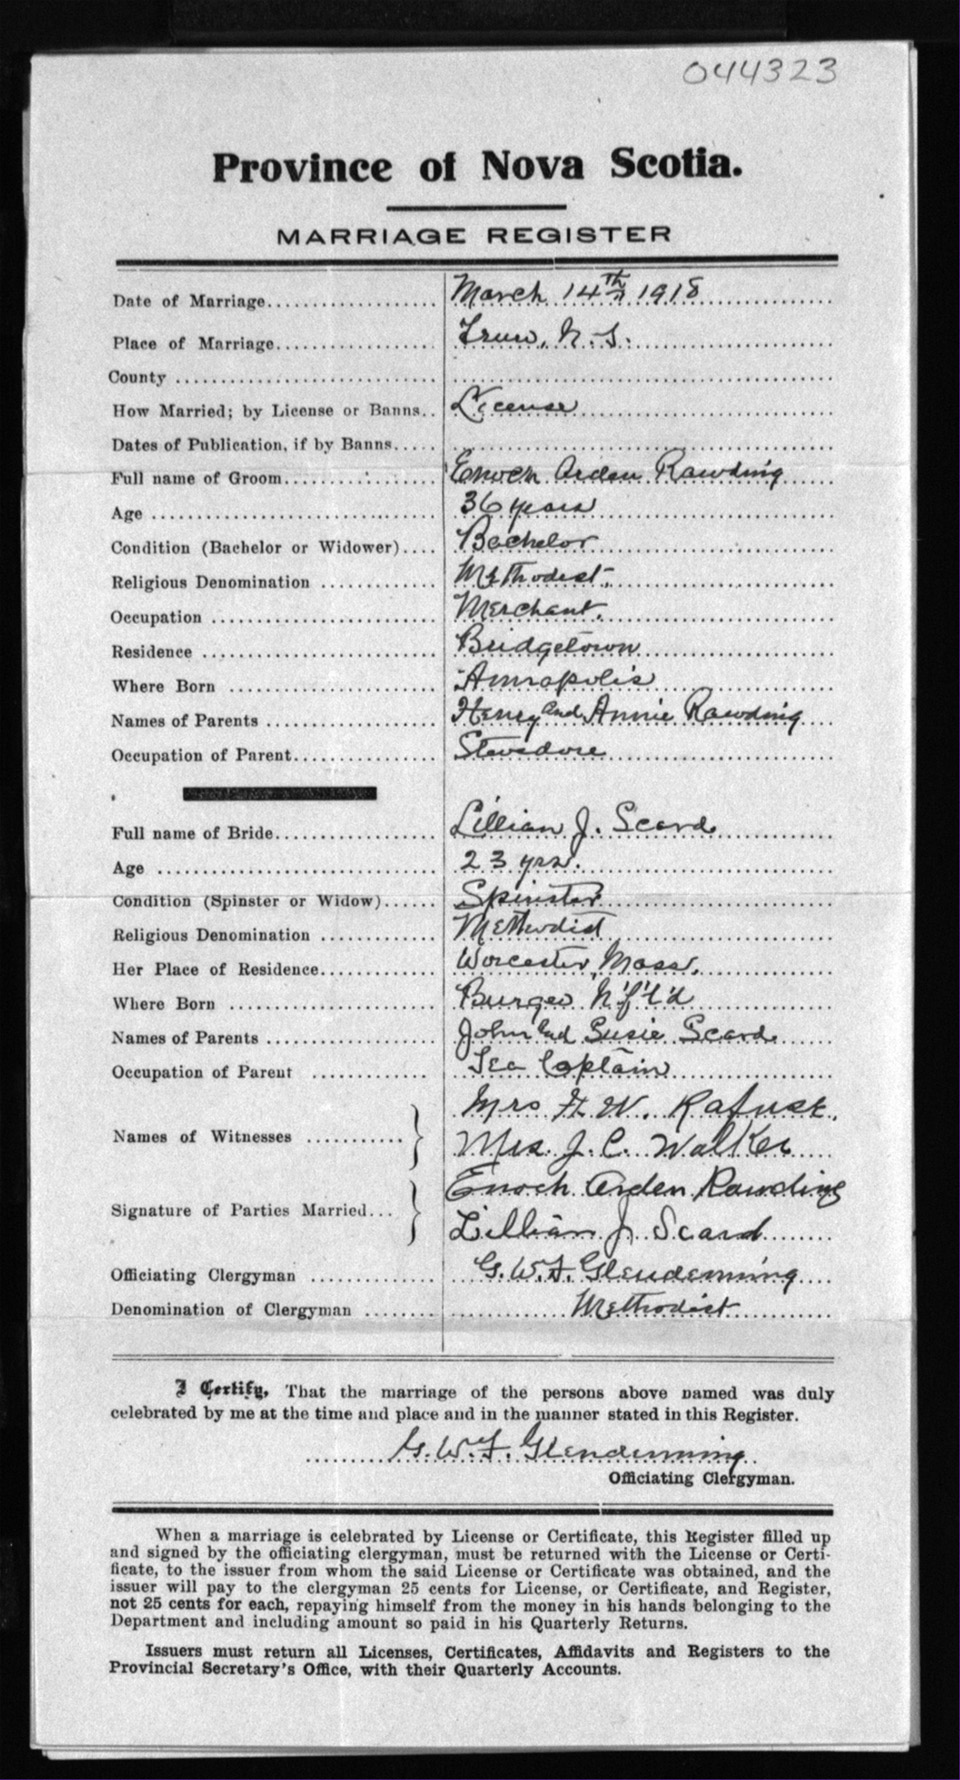 044323
Province of Nova Scotia.
MARRIAGE REGISTER
Date of Marriage.................. March 14th 1918
Place of Marriage................. Truro, N.S.
County ...........................
How Married; by License or Banns.. License
Dates of Publication, if by Banns.....
Full name of Groom................ Enoch Arden Rawding
Age .............................. 36 years
Condition (Bachelor or Widower).... Bachelor
Religious Denomination ............ Methodist
Occupation ....................... Merchant.
Residence ........................ Bridgetown
Where Born ....................... Annapolis
Names of Parents ................. Henry and Annie Rawding
Occupation of Parent.............. Stevedore
Full name of Bride................ Lillian J. Scard
Age .............................. 23 yrs.
Condition (Spinster or Widow)...... Spinster
Religious Denomination ............ Methodist
Her Place of Residence............ Worcester, Mass.
Where Born ....................... Burgeo N'f'l'd
Names of Parents ................. John and Susie Scard
Occupation of Parent ............. Sea Captain
Mrs H. W. Rafuse.
Names of Witnesses ...........
Mrs. J. C. Walker
Enoch Arden Rawding
Signature of Parties Married...
Lillian J. Scard
Officiating Clergyman ............. G. W. F. Glendenning
Denomination of Clergyman ........ Methodist
I Certify, That the marriage of the persons above named was duly
celebrated by me at the time and place and in the manner stated in this Register.
G. W. F. Glendenning
Officiating Clergyman.
When a marriage is celebrated by License or Certificate, this Register filled up
and signed by the officiating clergyman, must be returned with the License or Certi-
ficate, to the issuer from whom the said License or Certificate was obtained, and the
issuer will pay to the clergyman 25 cents for License, or Certificate, and Register,
not 25 cents for each, repaying himself from the money in his hands belonging to the
Department and including amount so paid in his Quarterly Returns.
Issuers must return all Licenses, Certificates, Affidavits and Registers to the
Provincial Secretary's Office, with their Quarterly Accounts.